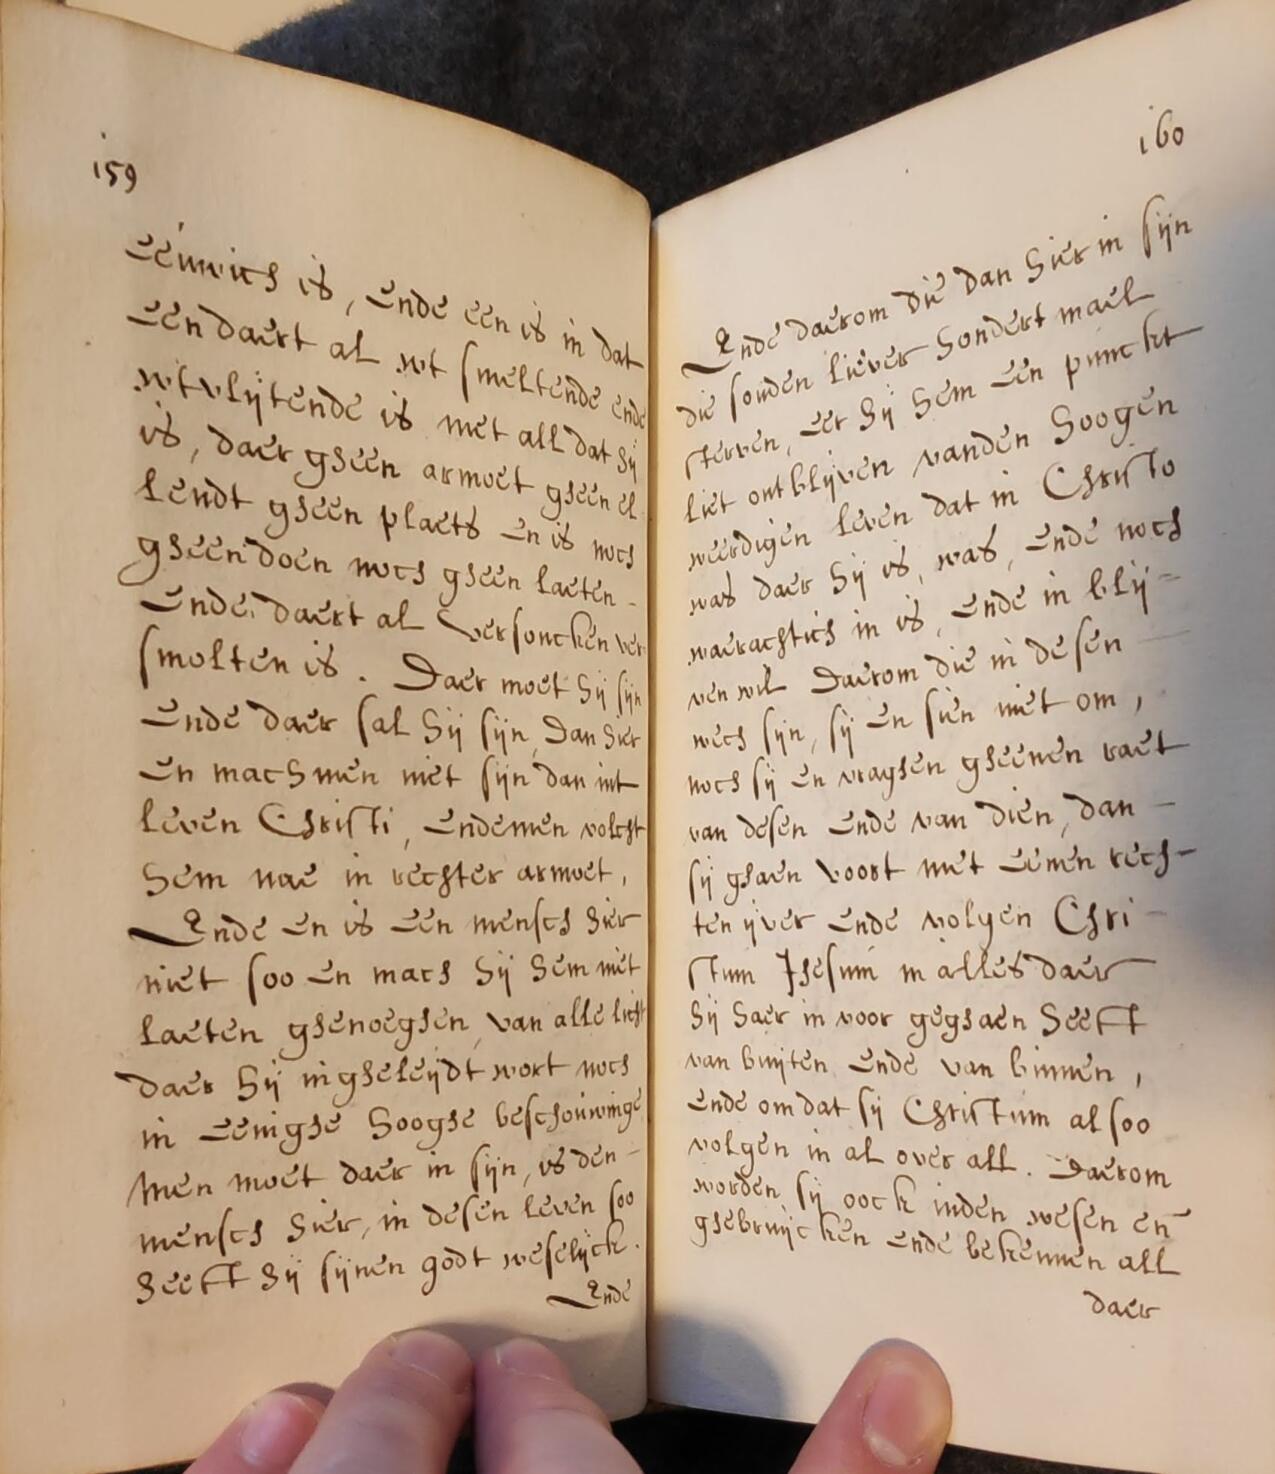 159
eeuwich is, ende een is in dat
een daert al wt smeltende ende
wtvlijtende is met all dat hij
is, daer gheen armoet gheen el
lendt gheen plaets en is noch
gheen doen noch gheen laeten -
ende daert al versoncken ver
smolten is. Daer moet hij sijn
ende daer sal hij sijn, dan hier
en mach men niet sijn dan int
leven Christi, ende men volcht
hem nae in rechter armoet,
Ende en is een mensch hier
niet soo en mach hij hem niet
laeten ghenoeghen van alle licht
daer hij in gheleijdt wort noch
in eenighe hooghe beschouwinge
men moet daer in sijn, is den -
mensch hier, in desen leven soo
heeft hij sijnen godt weselijck.
Ende
160
Ende daerom die dan hier in sijn
die souden liever hondert mael
sterven, eer hij hem een punckt
liet ontblijven vanden hoogen
weerdigen leven dat in Christo
was daer hij is, was, ende noch
waerachtich in is, ende in blij=
ven wil Daerom die in desen -
wech sijn, sij en sien niet om,
noch sij en vraghen gheenen raet
van desen ende van dien, dan -
sij ghaen voort met eenen rech-
ten ijver ende volgen Chri -
stum Ihesum in alles daer
hij haer in voor geghaen heeft
van buijten ende van binnen,
ende om dat sij Christum al soo
volgen in al over all. Daerom
worden sij oock inden wesen en̄
ghebruijcken ende bekennen all
daer